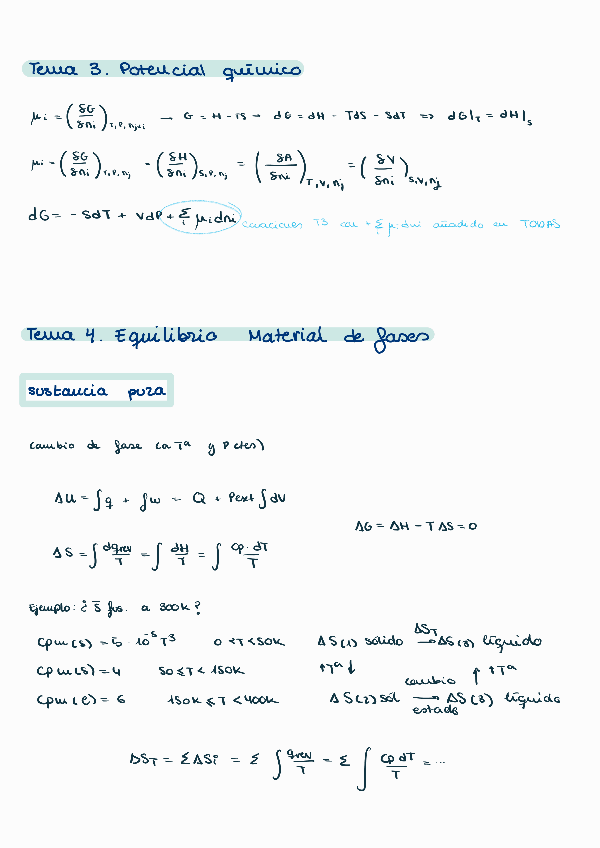 Tema 3. Potencial químico
μi = (δG/δni)T,P,nj≠i → G = H - TS → dG = dH - TdS - SdT ⇒ dG|T = dH|S
μi = (δG/δni)T,P,nj = (δH/δni)S,P,nj = (δA/δni)T,V,nj = (δV/δni)S,V,nj
dG = - SdT + VdP + Σi μidni ecuaciones T3 con + Σi μi·dni añadido en TODAS
Tema 4. Equilibrio Material de fases
sustancia pura
cambio de fase (a Tª y P ctes)
ΔU = ∫q + ∫w = Q + Pext∫dV
ΔG = ΔH - TΔS = 0
ΔS = ∫dqrev/T = ∫dH/T = ∫Cp·dT/T
Ejemplo: ¿S̄ fus. a 300K?
Cpm(s) = 5·10⁻⁵T³ 0<T<50K ΔS(1) sólido ΔST→ ΔS(3) líquido
Cpm(s) = 4 50≤T<150K ↑Tª↓ cambio ↑↑Tª
Cpm(l) = 6 150K≤T<400K ΔS(2) sól → ΔS(3) líquido
estado
ΔST = ΣΔSi = Σ∫qrev/T = Σ∫Cp dT/T = ...